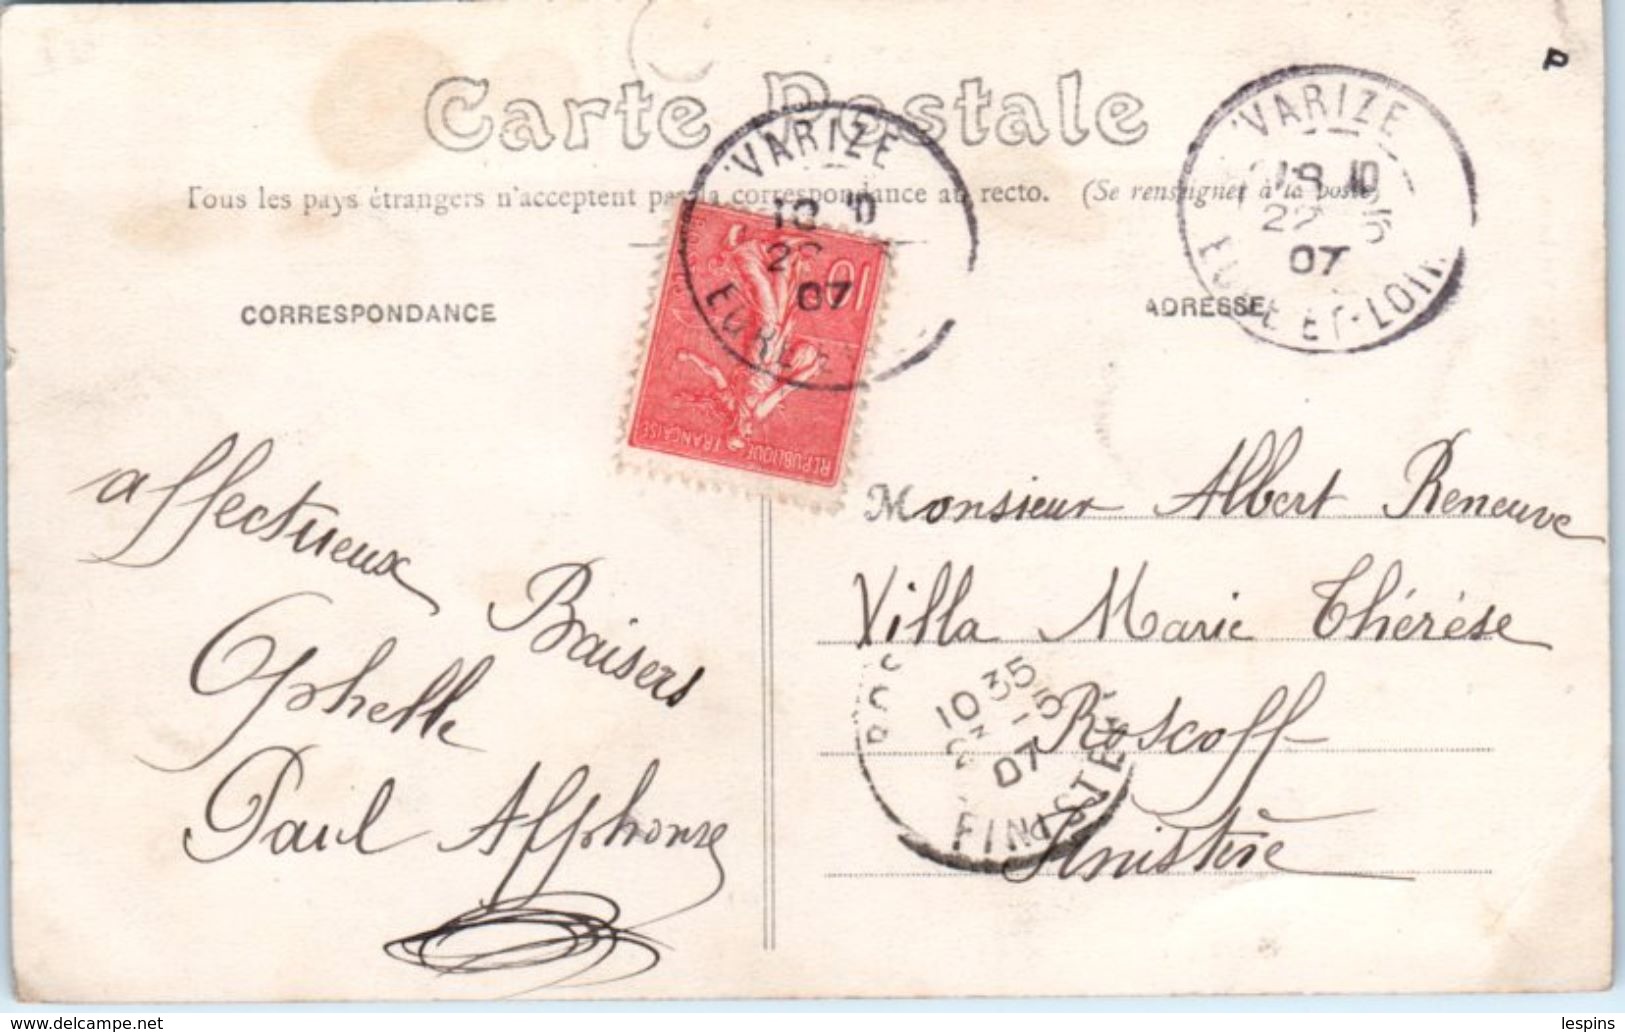 Carte Postale
Tous les pays étrangers n'acceptent pas la correspondance au recto. (Se renseigner à la poste)
CORRESPONDANCE
ADRESSE
VARIZE
18 10
07
EURE
VARIZE
18 10
22 -5
07
EURE ET-LOIR
10F
REPUBLIQUE FRANÇAISE
affectueux Baisers
Ophelle
Paul Alphonse
Monsieur Albert Reneuve
Villa Marie Thérèse
Roscoff
Finistère
10 35
-5
07
FINISTERE
P
lespins